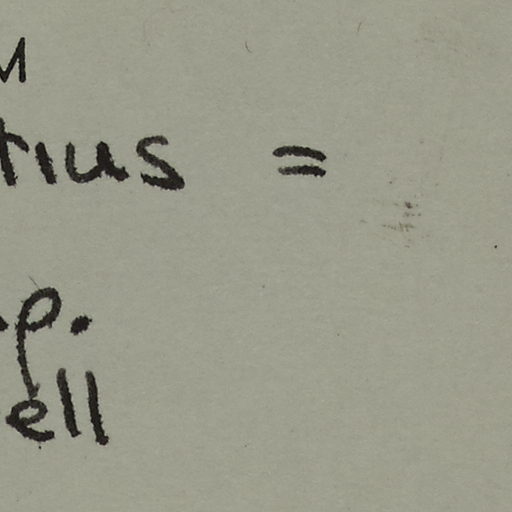 M
tius =
p.
ell